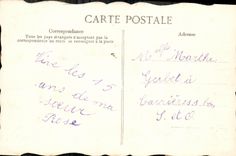 CARTE POSTALE
Correspondance
Tous les pays étrangers n'acceptent pas la
correspondance au recto se renseigner à la poste
Adresse
Vive les 15
ans de ma
sœur
Rose
Mlle Marthe
Gerbet à
Carrières s.
S. et O